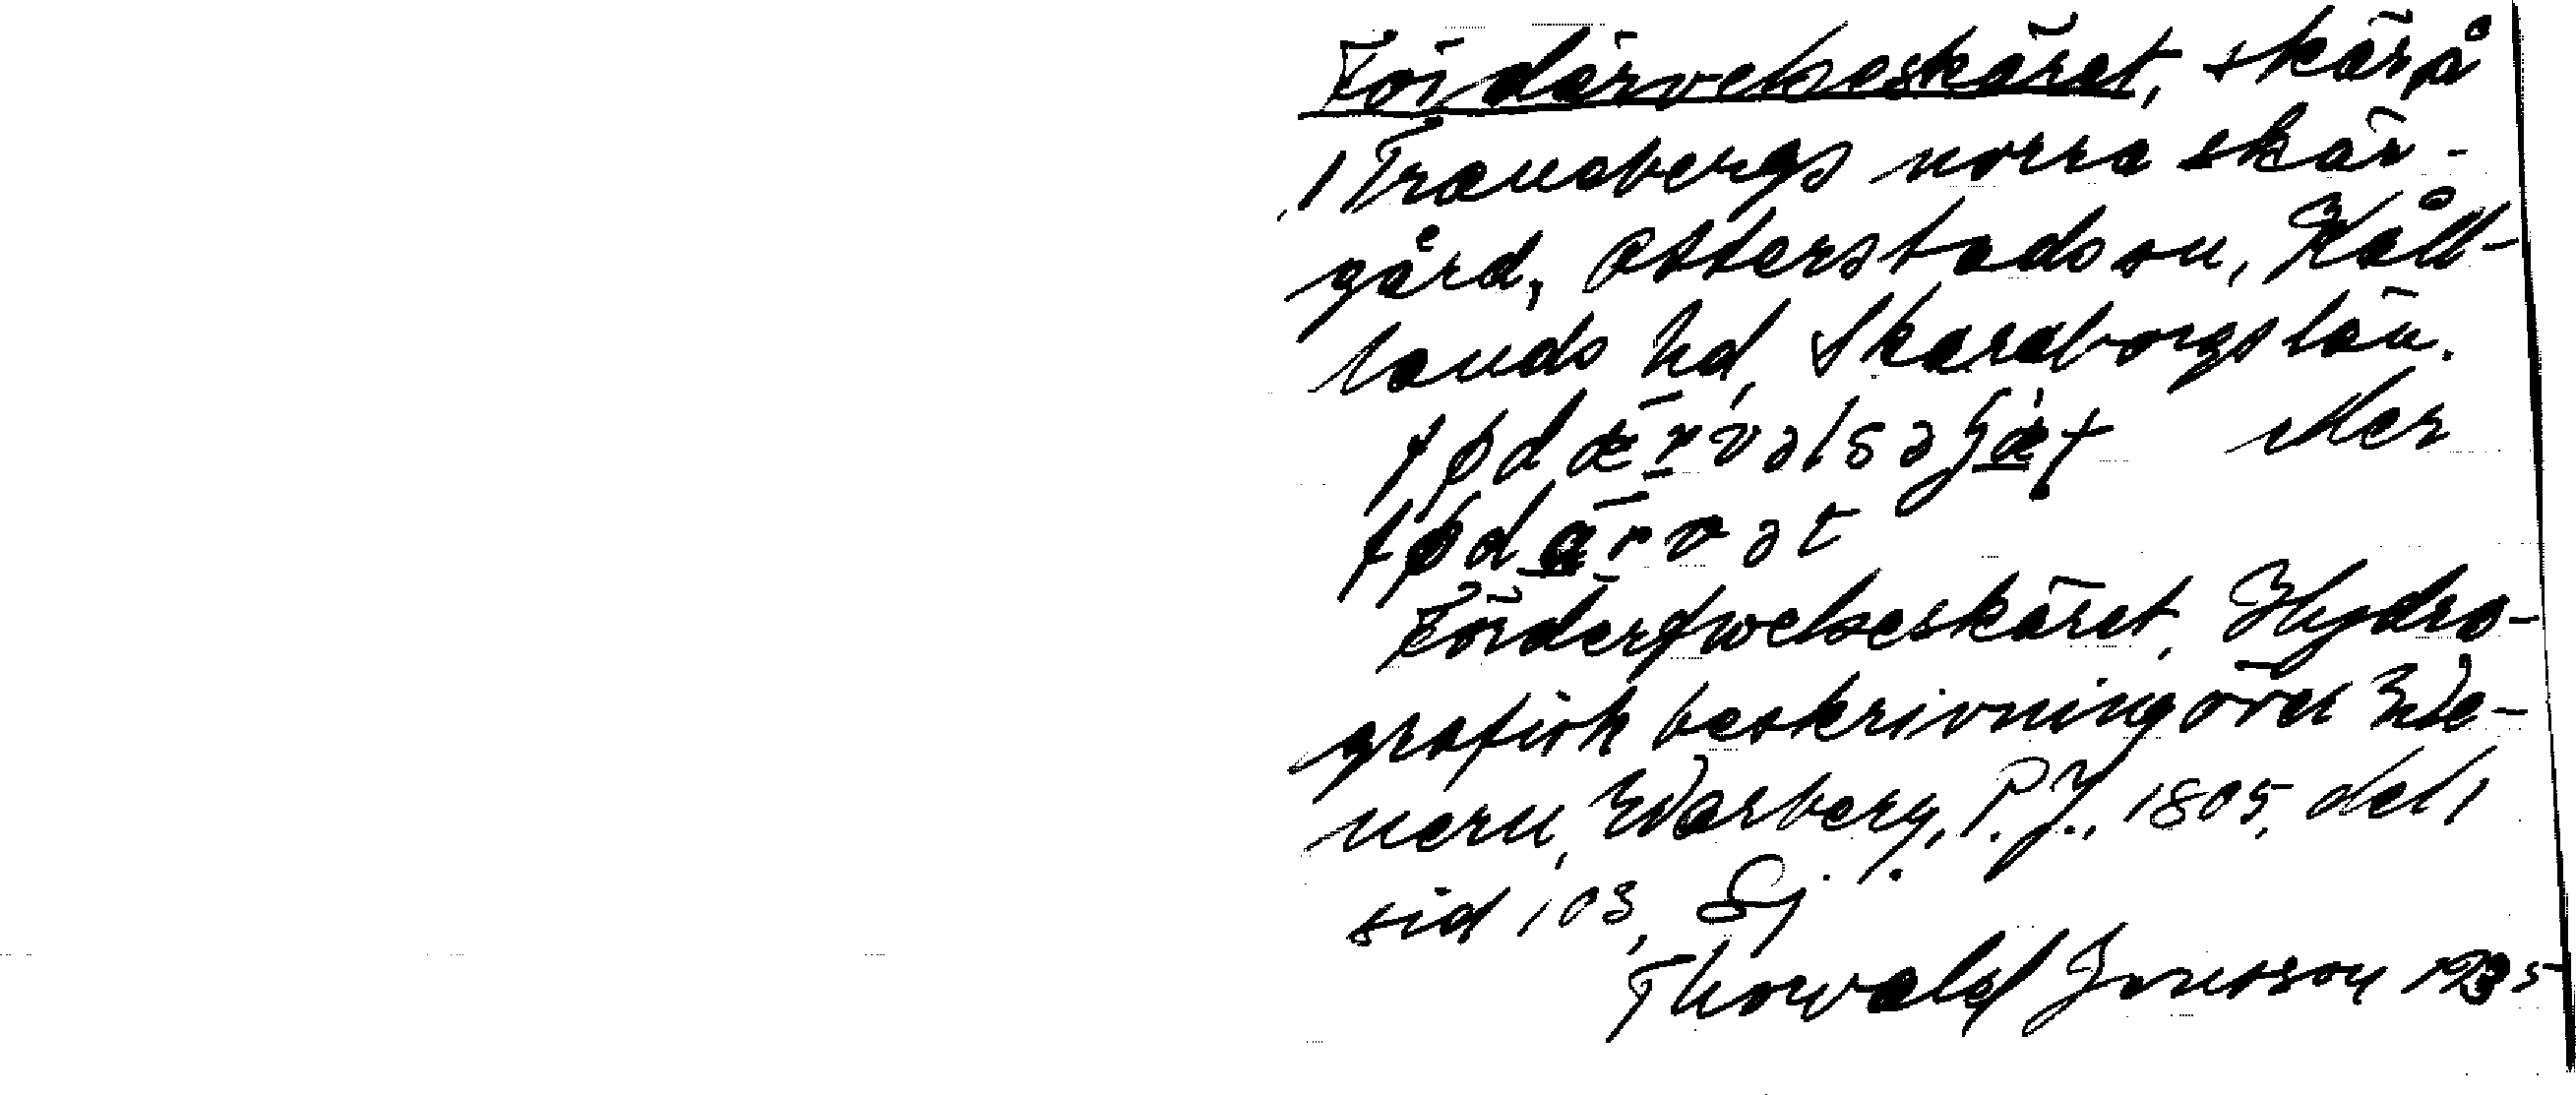 Fördärvelseskäret, skär på
i Tranebergs norra skär-
gård, Otterstads sn, Kåll-
lands hd, Skaraborgs län.
eller
Förderfwelseskäret, Hydro-
grafisk beskrivning över We-
nern, Warberg, P. J., 1805, del 1
sid 103, Sj.
Thorvald Jonsson 1935